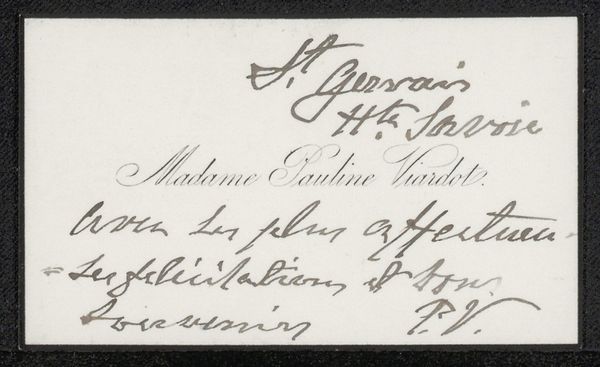 St Gervais
Hte Savoie
Madame Pauline Viardot.
avec ses plus affectueu-
=ses félicitations et bons
souvenirs P.V.